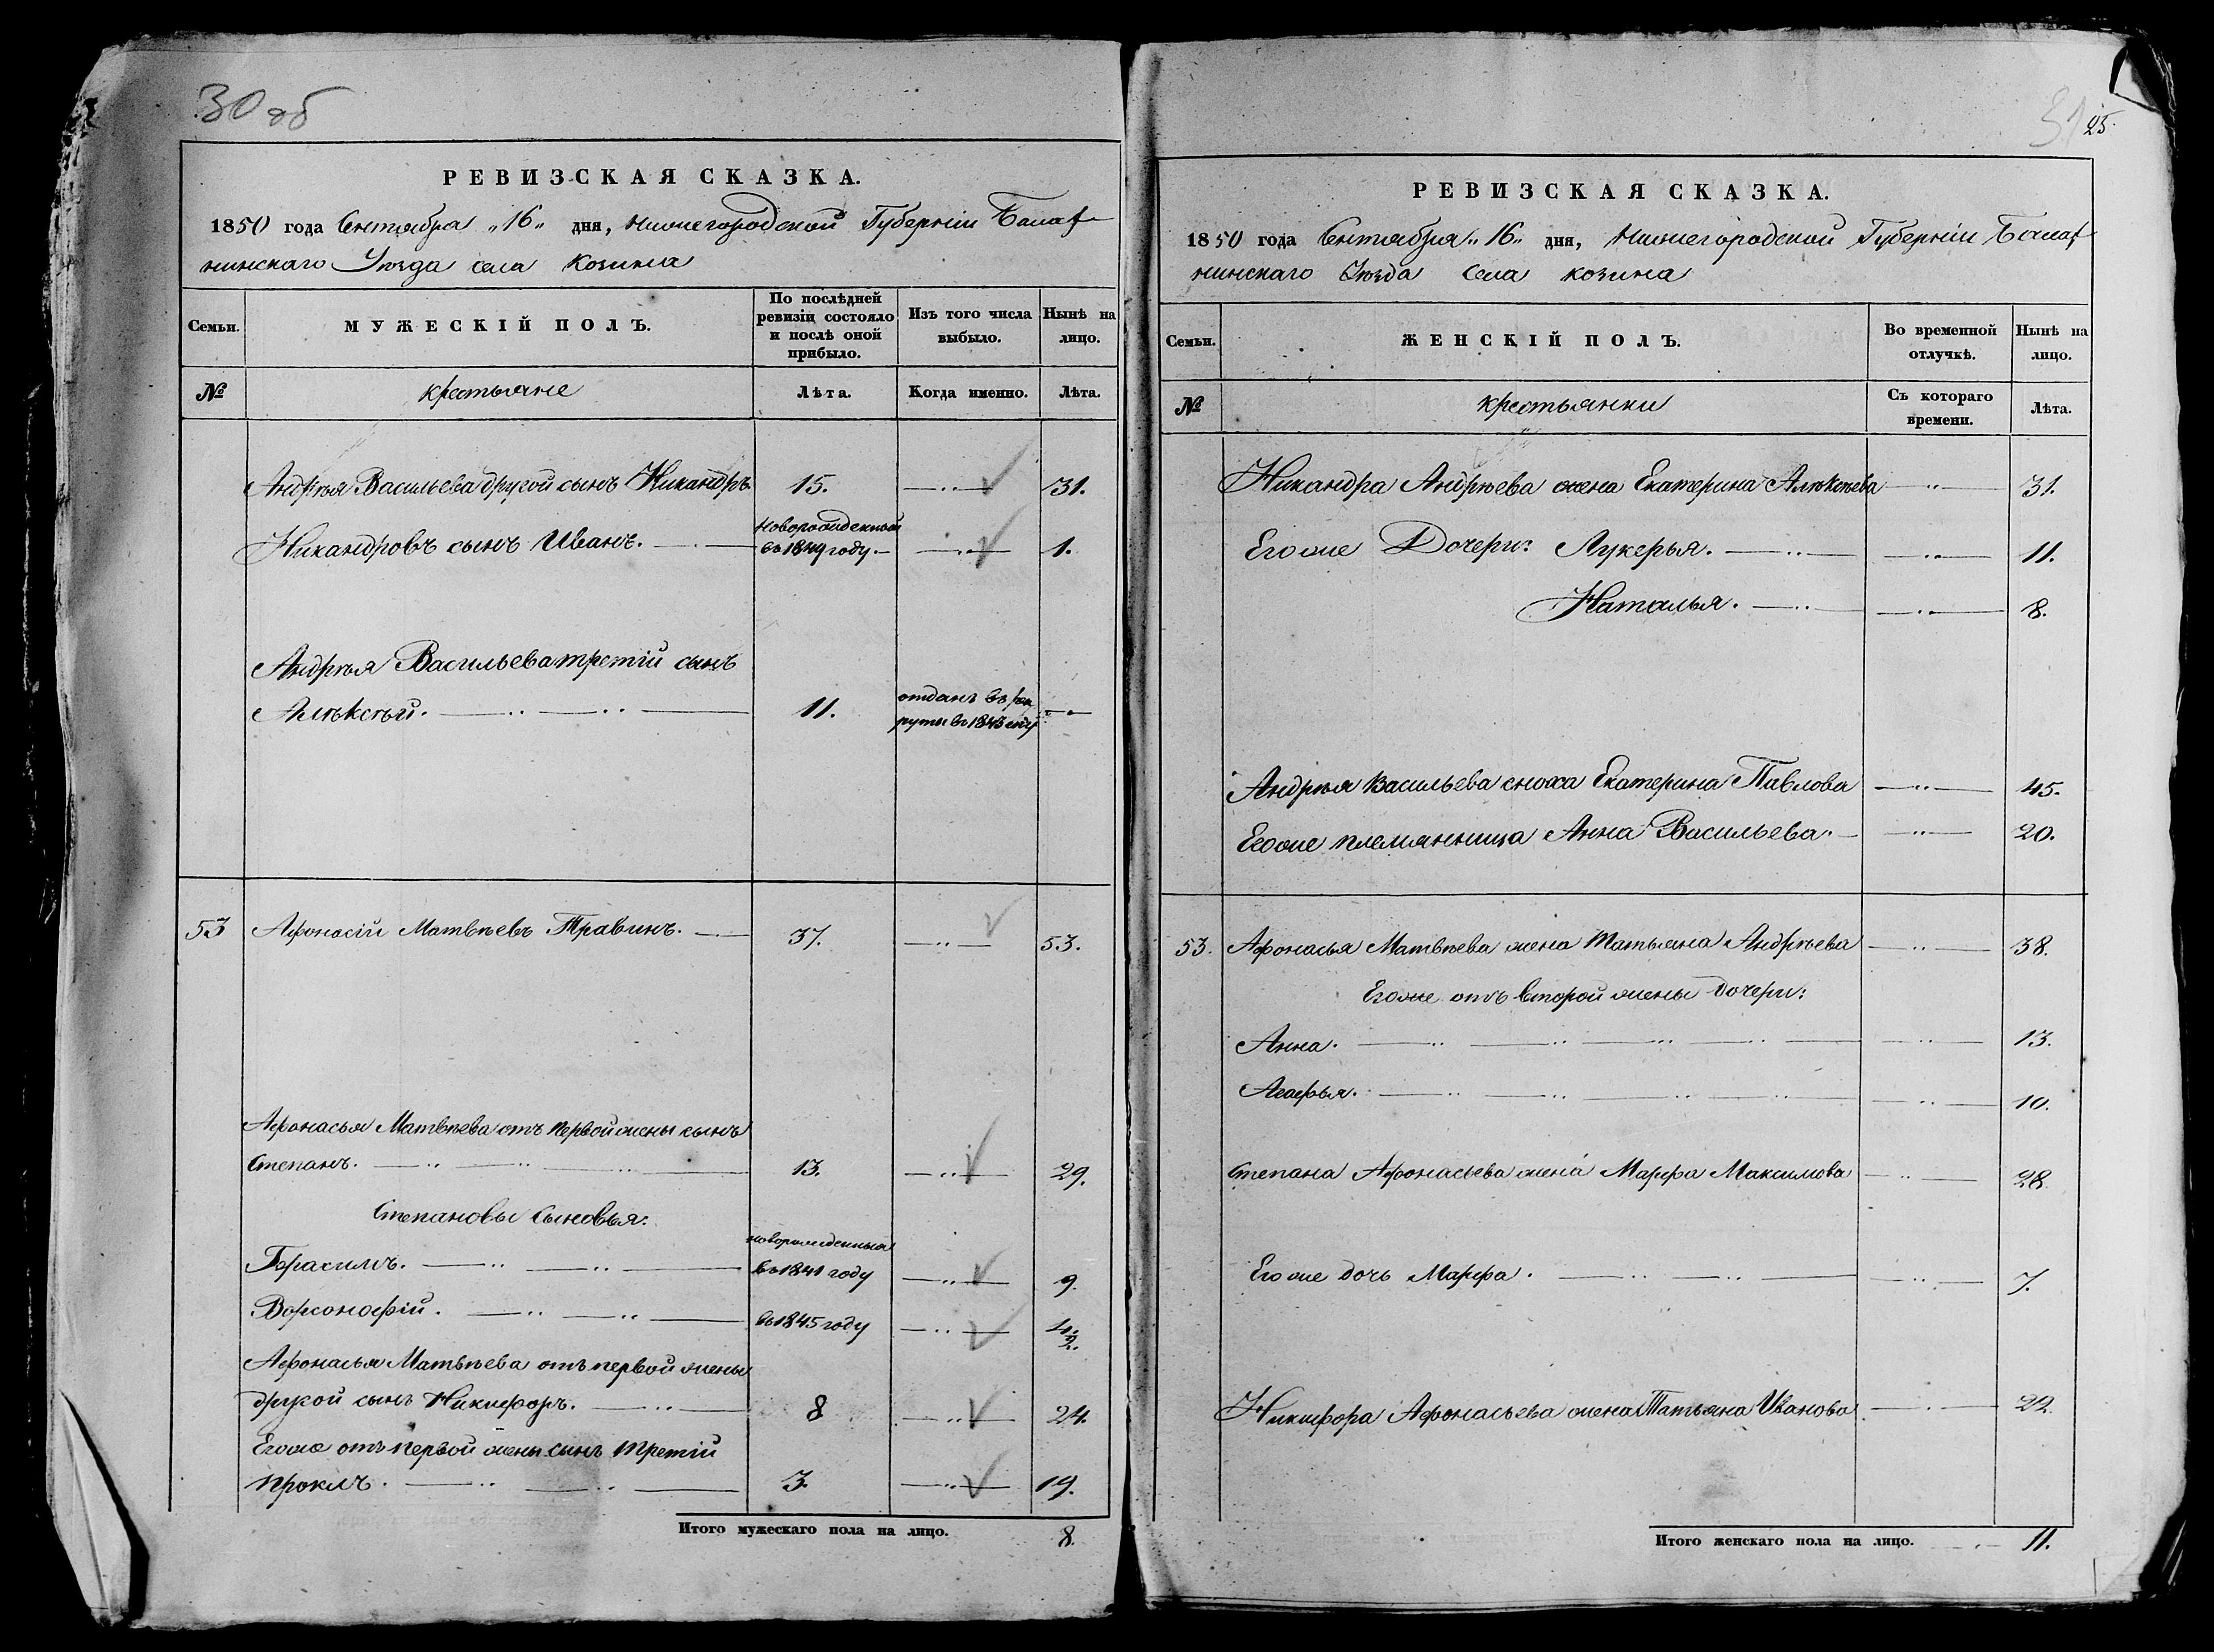 30 об
РЕВИЗСКАЯ СКАЗКА.
1850 года Сентября „16„ дня, Нижегородской Губерніи Балах-
нинскаго Уѣзда села Козина
Семьи. МУЖЕСКІЙ ПОЛЪ. По послѣдней ревизіи состояло и послѣ оной прибыло. Изъ того числа выбыло. Нынѣ на лицо.
№ крестьяне Лѣта. Когда именно. Лѣта.
Андрѣя Васильева другой сынъ Никандръ 15. 31.
Никандровъ сынъ Иванъ. новорожденной въ 1849 году. 1.
Андрѣя Васильева третій сынъ
Алѣксѣй. 11. отданъ въ рекруты въ 1843 году
53 Афонасій Матвѣевъ Травинъ. 37. 53.
Афонасья Матвѣева отъ первой жены сынъ
Степанъ. 13. 29.
Степановы сыновья:
Герасимъ. новорожденныя въ 1841 году 9.
Ворсонофій. въ 1845 году 4 1/2.
Афонасья Матвѣева отъ первой жены
другой сынъ Никифоръ. 8 24.
Егоже отъ первой жены сынъ третій
Проклъ. 3. 19.
Итого мужескаго пола на лицо. 8.
31 25.
РЕВИЗСКАЯ СКАЗКА.
1850 года Сентября „16„ дня, Нижегородской Губерніи Балах-
нинскаго Уѣзда села Козина
Семьи. ЖЕНСКІЙ ПОЛЪ. Во временной отлучкѣ. Нынѣ на лицо.
№ крестьянки Съ котораго времени. Лѣта.
Никандра Андрѣева жена Екатерина Алѣксѣева 31.
Егоже Дочери: Лукерья. 11.
Наталья. 8.
Андрѣя Васильева сноха Екатерина Павлова 45.
Егоже племянница Анна Васильева. 20.
53. Афонасья Матвѣева жена Татьяна Андрѣева 38.
Егоже отъ второй жены дочери:
Анна. 13.
Агафья. 10.
Степана Афонасьева жена Марфа Максимова 28.
Егоже дочь Марфа. 7.
Никифора Афонасьева жена Татьяна Иванова 22.
Итого женскаго пола на лицо. 11.